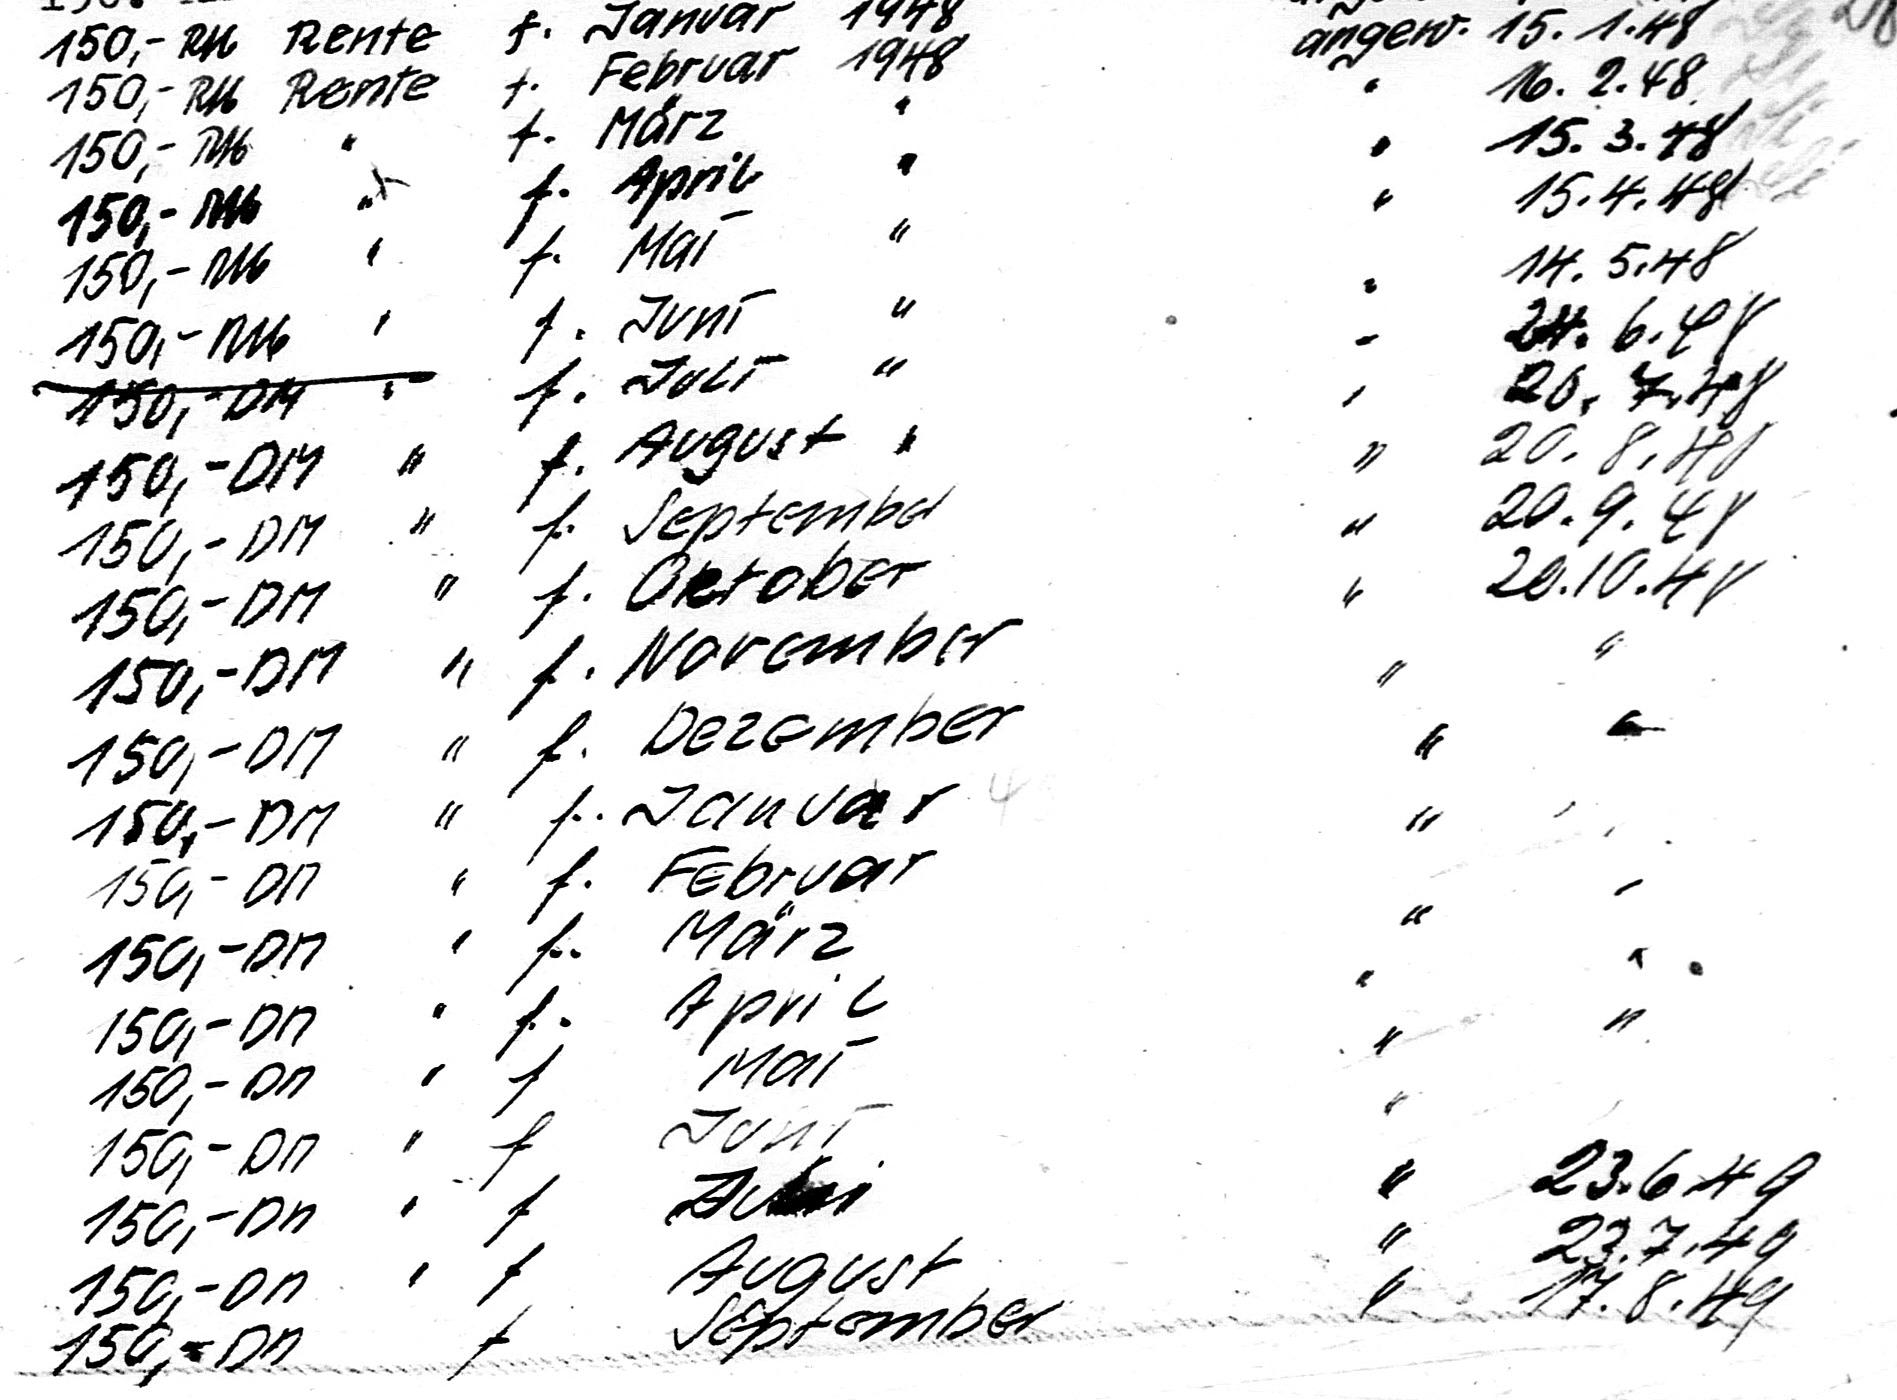 150,- RM Rente f. Januar 1948 angew. 15. 1. 48
150,- RM Rente f. Februar 1948 " 16. 2. 48
150,- RM " f. März " " 15. 3. 48
150,- RM " f. April " " 15. 4. 48
150,- RM " f. Mai " " 14. 5. 48
150,- RM " f. Juni " " 24. 6. 48
150,- DM " f. Juli " " 20. 7. 48
150,- DM " f. August " " 20. 8. 48
150,- DM " f. September " 20. 9. 48
150,- DM " f. Oktober " 20. 10. 48
150,- DM " f. November " "
150,- DM " f. Dezember " "
150,- DM " f. Januar " "
150,- DM " f. Februar " "
150,- DM " f. März " "
150,- DM " f. April " "
150,- DM " f Mai "
150,- DM " f Juni " 23. 6. 49
150,- DM " f Juli " 23. 7. 49
150,- DM " f August " 17. 8. 49
150,- DM f September